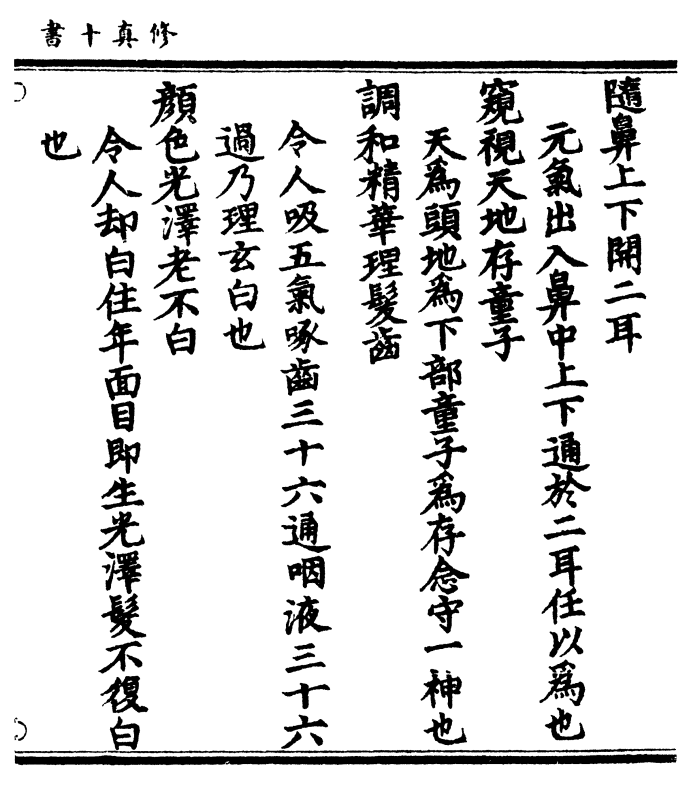 修真十書
隨鼻上下開二耳
元氣出入鼻中上下通於二耳任以為也
窺視天地存童子
天為頭地為下部童子為存念守一神也
調和精華理髮齒
令人吸五氣啄齒三十六通咽液三十六
過乃理玄白也
顏色光澤老不白
令人却白住年面目即生光澤髮不復白
也